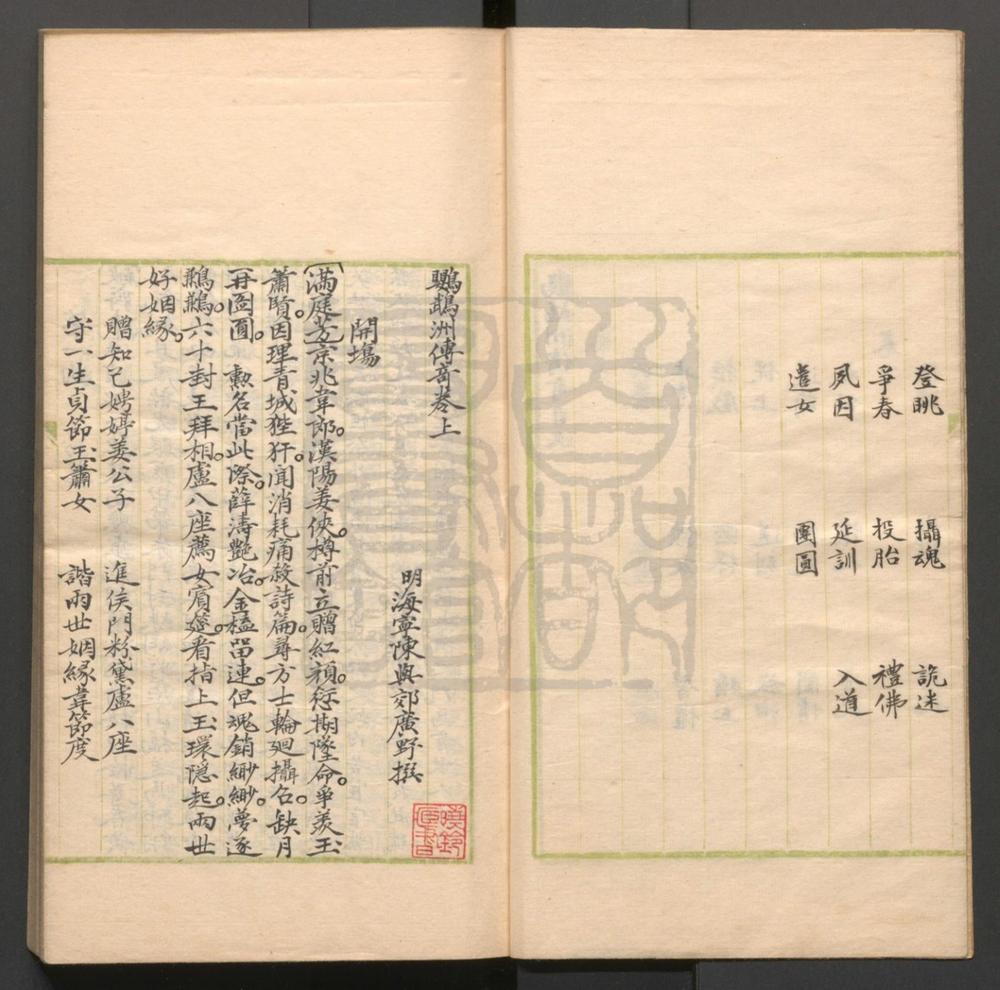 登眺　攝魂　詭迷
爭春　投胎　禮佛
夙因　延訓　入道
遣女　團圓
鸚鵡洲傳竒卷上
明海寧陳與郊廣野撰
開塲
滿庭芳京兆韋郎。漢陽姜俠。樽前立贈紅顔。愆期墜命。爭羨玉
簫賢。因理青城狴犴。聞消耗痛殺詩篇。尋方士輪廻攝召缺月
再圓圓。勲名當此際。薛濤艷冶。金榼畱連。但魂銷緲緲。夢逐
鶼鶼。六十封王拜相。盧八座薦女賓筵。看指上玉環隠起。兩世
好姻緣。
贈知己娉婷姜公子　進侯門粉黛盧八座
守一生貞節玉簫女　諧兩世姻緣韋節度